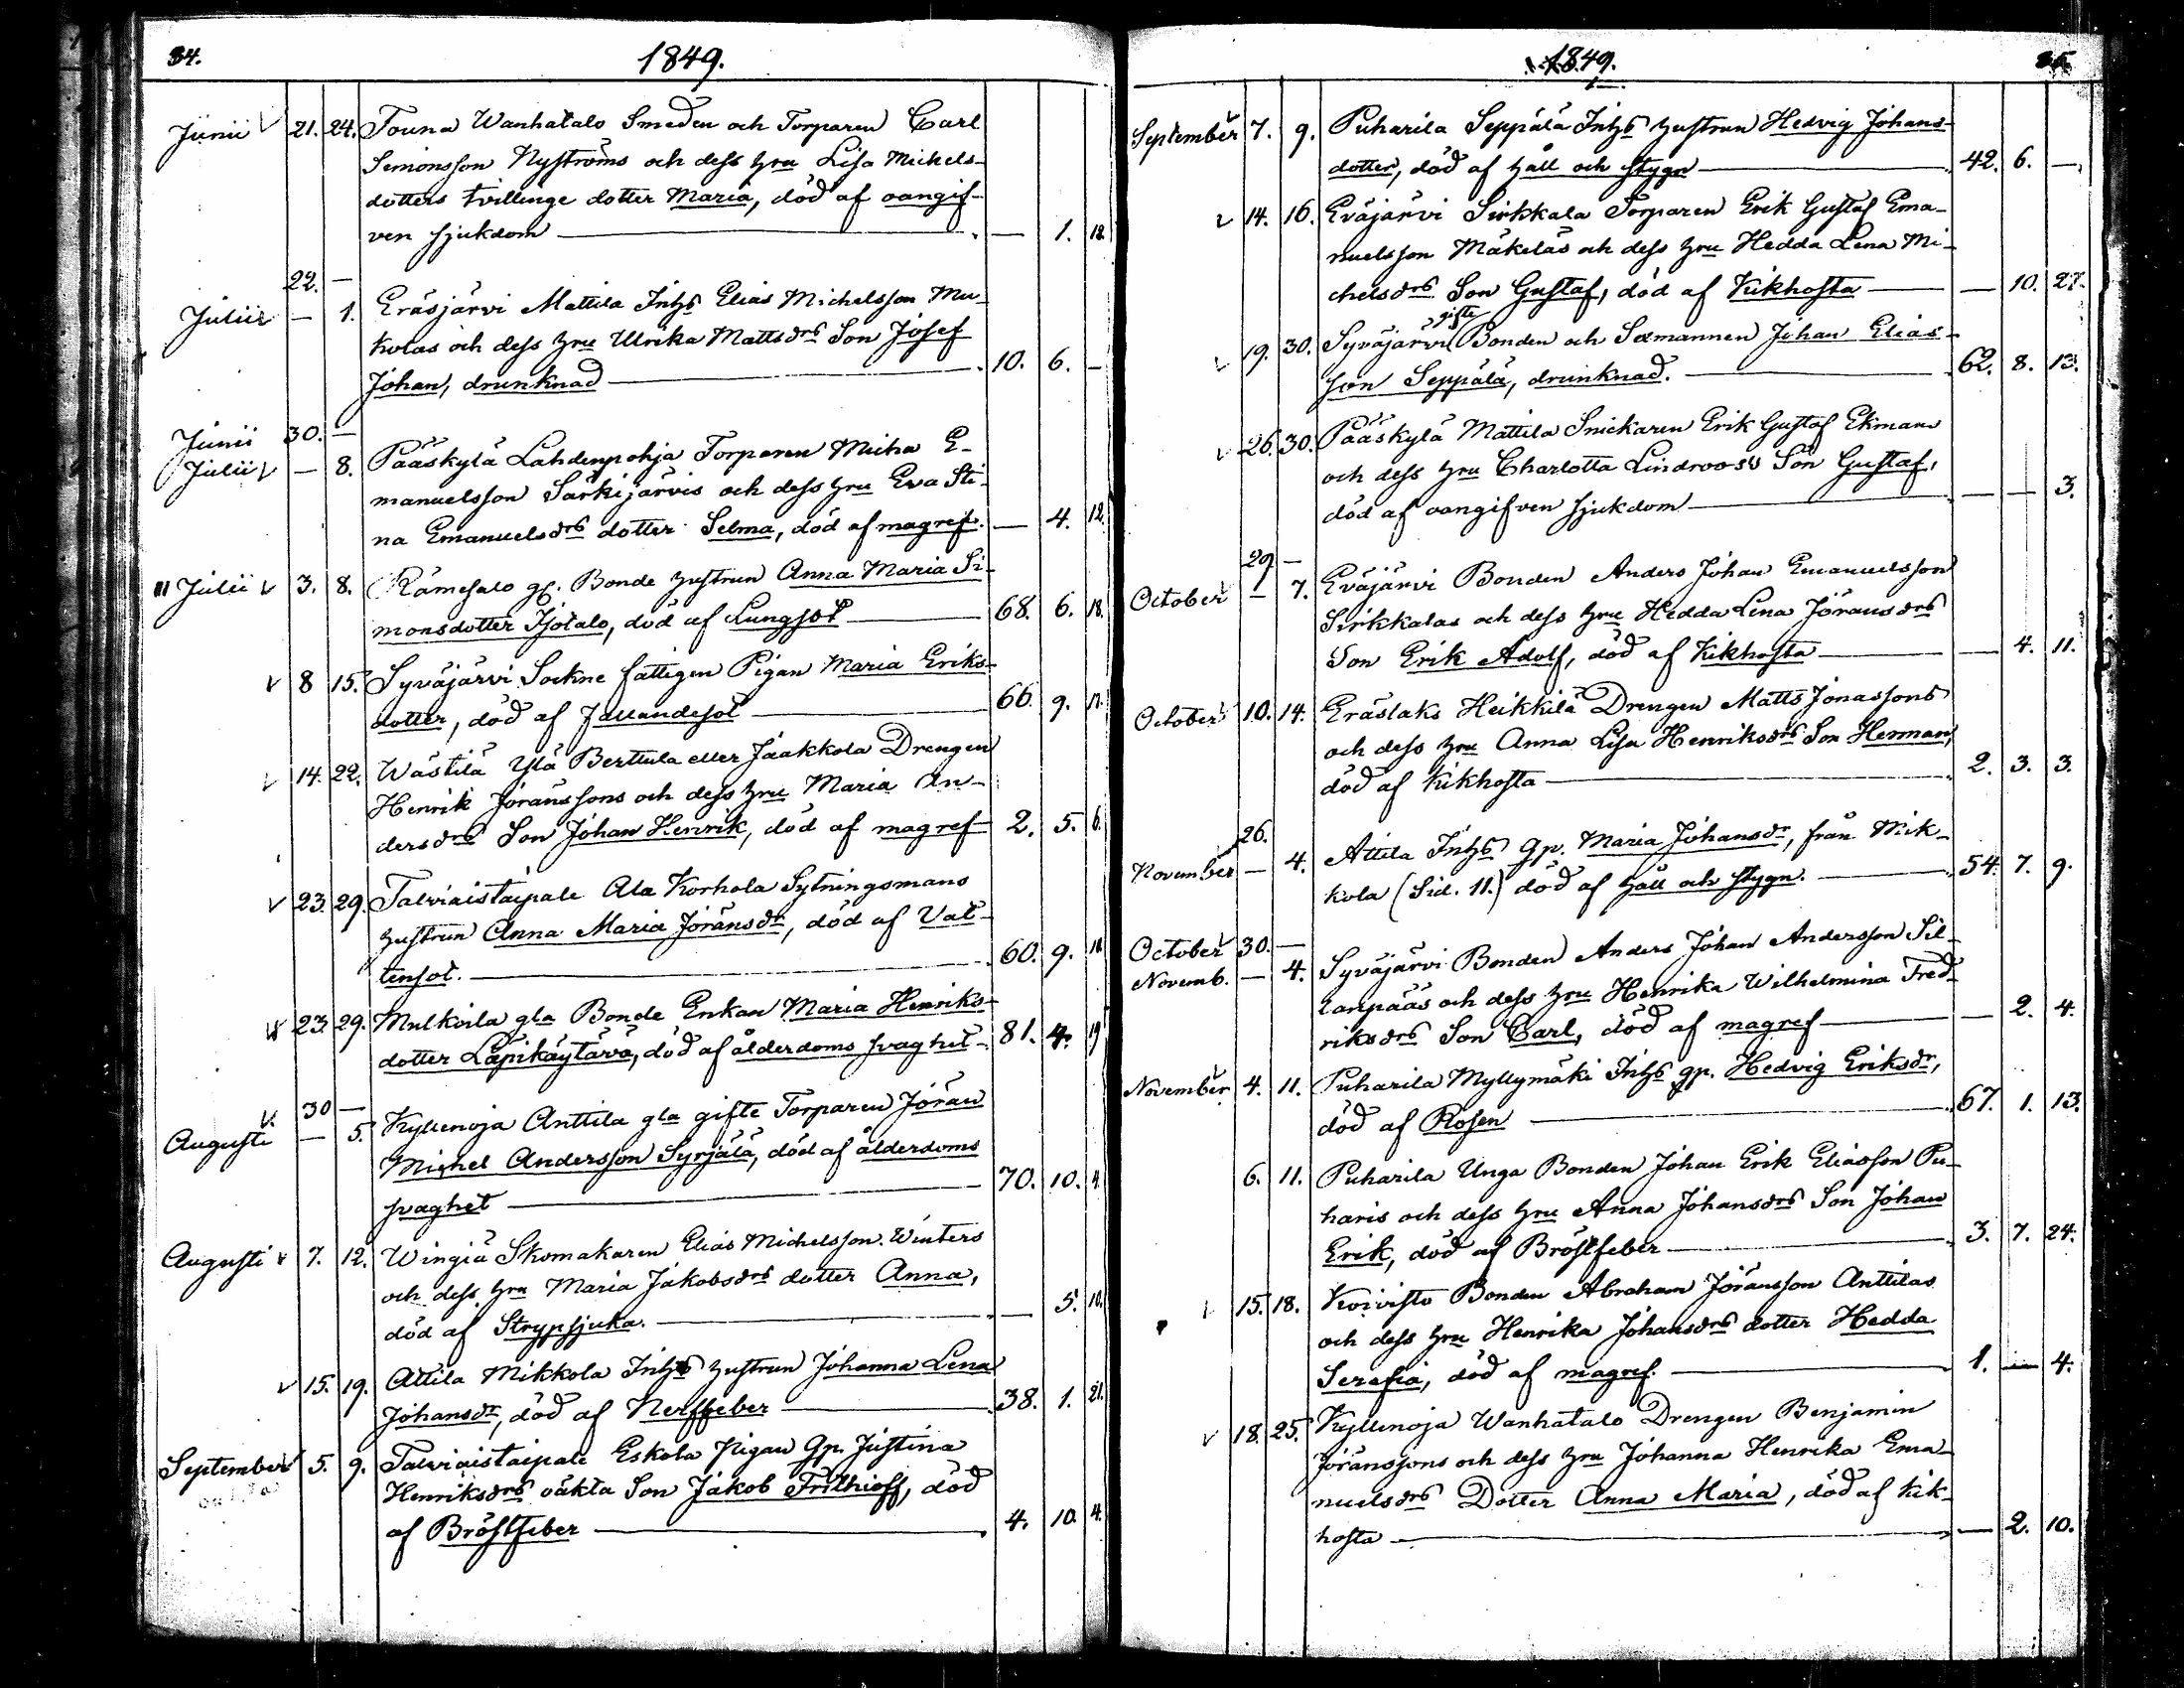 34.
1849.
Junii 21. 24. Touna Wanhatalo Smeden och Torparen Carl
Simonsson Nyströms och dess hru Lisa Michels-
dotters tvillinge dotter Maria, död af oangif-
ven sjukdom — — 1. 18.
22. —
Julii — 1. Eräsjärvi Mattila Inhs Elias Michelsson Mu-
kolas och dess hru Ulrika Mattsdrs Son Josef
Johan, drunknad — 10. 6. —
Junii 30. —
Julii — 8. Pääskylä Lahdenpohja Torparen Micha E-
manuelsson Särkijärvis och dess hru Eva Sti-
na Emanuelsdrs dotter Selma, död af magref. — 4. 12.
Julii 3. 8. Rämesalo gf. Bonde hustrun Anna Maria Si-
monsdotter Isotalo, död af Lungsot — 68. 6. 18.
8 15. Syväjärvi Sockne fattigen Pigan Maria Eriks-
dotter, död af fallandesot — 66. 9. 17.
14. 22. Wästilä Ylä Berttula eller Jaakkola Drengen
Henrik Jöranssons och dess hru Maria An-
dersdrs Son Johan Henrik, död af magref 2. 5. 6.
23. 29. Talviaistaipale Ala Korhola Sytningsmans
hustrun Anna Maria Jöransdr, död af Vat-
tensot. — 60. 9. 18.
23 29. Mulkoila gla Bonde Enkan Maria Henriks-
dotter Läpikäytävä, död af ålderdoms svaghet — 81. 4. 19
30 —
Augusti — 5. Kyllenoja Anttila gla gifte Torparen Jöran
Michel Andersson Syrjälä, död af ålderdoms
svaghet — 70. 10. 4.
Augusti 7. 12. Wingiä Skomakaren Elias Michelsson Winters
och dess hru Maria Jakobsdrs dotter Anna,
död af Strypsjuka. — — 5. 10.
15. 19. Attila Mikkola Inhs hustrun Johanna Lena
Johansdr, död af Nerffeber — 38. 1. 21.
September 5. 9. Talviaistaipale Eskola pigan Gp. Justina
Henriksdrs oäkta Son Jakob Frithioff, död
af Bröstfeber — 4. 10. 4.
1849.
35
September 7. 9. Puharila Seppälä Inhs hustrun Hedvig Johans-
dotter, död af håll och stygn — 42. 6. —
14. 16. Eväjärvi Sirkkala Torparen Erik Gustaf Ema-
nuelsson Mäkeläs och dess hru Hedda Lena Mi-
chelsdrs Son Gustaf, död af Kikhosta — — 10. 27.
gifte
19. 30. Syväjärvi Bonden och Sexmannen Johan Elias-
son Seppälä, drunknad. — 62. 8. 13.
26. 30. Pääskylä Mattila Snickaren Erik Gustaf Ekmans
och dess hru Charlotta Lindroos's Son Gustaf,
död af oangifven sjukdom — — — 3.
29 —
October — 7. Eväjärvi Bonden Anders Johan Emanuelsson
Sirkkalas och dess hru Hedda Lena Jöransdrs
Son Erik Adolf, död af Kikhosta — — 4. 11.
October 10. 14. Eräslaks Heikkilä Drengen Matts Jonassons
och dess hru Anna Lisa Henriksdrs Son Herman,
död af Kikhosta — 2. 3. 3.
26.
November — 4. Attila Inhs Gp. Maria Johansdr, från Mik-
kola (Sid. 11.) död af håll och stygn. — 54. 7. 9.
October 30. —
Novemb. — 4. Syväjärvi Bonden Anders Johan Andersson Sil-
lanpääs och dess hru Henrika Wilhelmina Fred-
riksdrs Son Carl, död af magref — — 2. 4.
November 4. 11. Puharila Myllymäki Inhs gp. Hedvig Eriksdr,
död af Rosen — 67. 1. 13.
6. 11. Puharila Unga Bonden Johan Erik Eliasson Pu-
haris och dess hru Anna Johansdrs Son Johan
Erik, död af Bröstfeber — 3. 7. 24.
15. 18. Koivisto Bonden Abraham Jöransson Anttilas
och dess hru Henrika Johansdrs dotter Hedda
Serafia, död af magref. — 1. — 4.
18. 25. Kyllenoja Wanhatalo Drengen Benjamin
Jöranssons och dess hru Johanna Henrika Ema-
nuelsdrs Dotter Anna Maria, död af Kik-
hosta — — 2. 10.